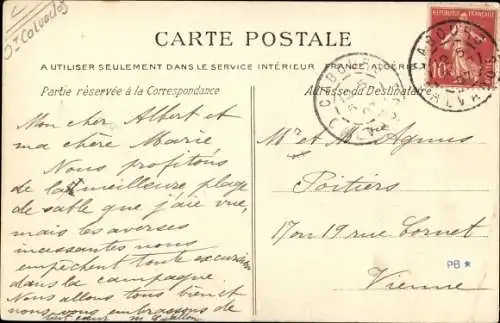 Dt Calvados
CARTE POSTALE
A UTILISER SEULEMENT DANS LE SERVICE INTÉRIEUR FRANCE ALGÉRIE
Partie réservée à la Correspondance
Adresse du Destinataire
REPUBLIQUE FRANÇAISE
10
CABOURG
CALVADOS
CABOURG
CALVADOS
Mon cher Albert et
ma chère Marie
Nous profitons
de la meilleure plage
de sable que j'aie vue,
mais les averses
incessantes nous
empêchent toute excursion
dans la campagne
Nous allons tous bien et
nous vous embrassons de
tout cœur
Mr et Mme Agnus
Poitiers
17 ou 19 rue Cornet
Vienne
PB *